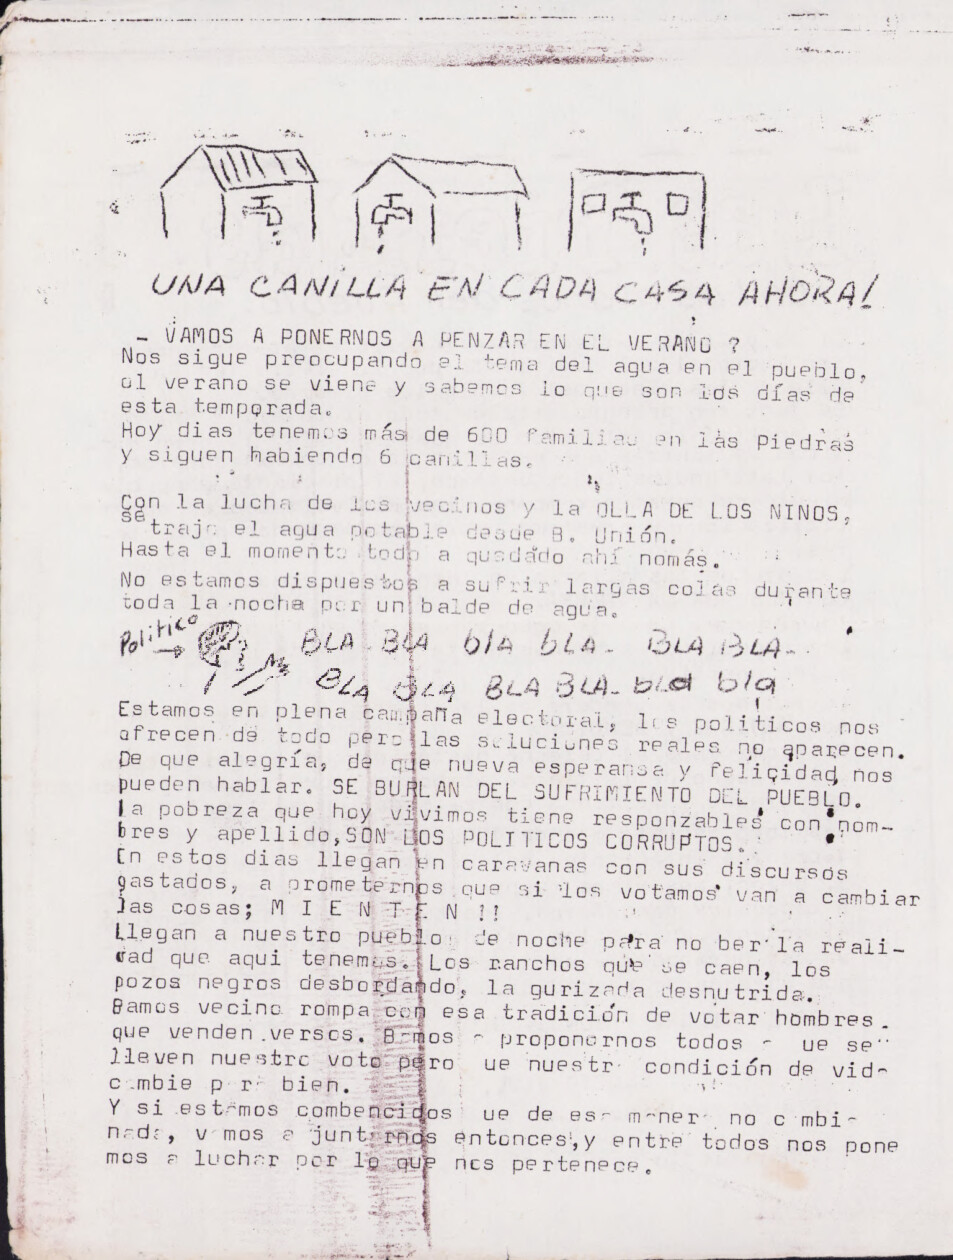 UNA CANILLA EN CADA CASA AHORA!
- VAMOS A PONERNOS A PENZAR EN EL VERANO ?
Nos sigue preocupando el tema del agua en el pueblo,
el verano se viene y sabemos lo que son los días de
esta temporada.
Hoy dias tenemos más de 600 familias en las Piedras
y siguen habiendo 6 canillas.
Con la lucha de los vecinos y la OLLA DE LOS NINOS,
se trajo el agua potable desde B. Unión.
Hasta el momento todo a quedado ahí nomás.
No estamos dispuestos a sufrir largas colas durante
toda la nocha por un balde de agua.
Politico
BLA BLA bla bLA- BLA BLA-
BLA BLA BLA BLA- bla bla
Estamos en plena campaña electoral, los politicos nos
ofrecen de todo pero las soluciones reales no aparecen.
De que alegría, de que nueva esperansa y felicidad nos
pueden hablar. SE BURLAN DEL SUFRIMIENTO DEL PUEBLO.
La pobreza que hoy vivimos tiene responzables con nom-
bres y apellido,SON LOS POLITICOS CORRUPTOS.
En estos dias llegan en caravanas con sus discursos
gastados, a prometernos que si los votamos van a cambiar
las cosas; M I E N T E N !!
Llegan a nuestro pueblo de noche para no ber la reali-
dad que aqui tenemos. Los ranchos que se caen, los
pozos negros desbordando, la gurizada desnutrida.
Bamos vecino rompa con esa tradición de votar hombres
que venden versos. Bamos a proponernos todos a ue se
lleven nuestro voto pero ue nuestr condición de vid-
c mbie p r bien.
Y si estamos combencidos ue de es maner no c mbi-
nada, vamos a juntarnos entonces,y entre todos nos pone
mos a luchar por lo que nos pertenece.